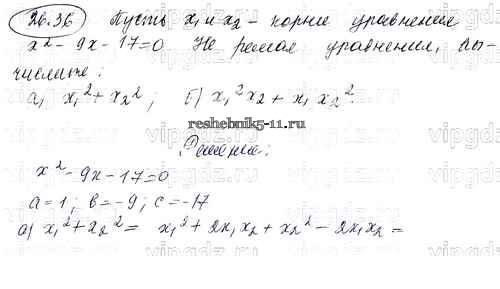 26.36 Пусть x₁ и x₂ – корни уравнения
x² - 9x - 17 = 0. Не решая уравнения, вы-
числите:
а) x₁² + x₂² ; б) x₁²x₂ + x₁x₂².
reshebnik5-11.ru
Решение:
x² - 9x - 17 = 0
a = 1; b = -9; c = -17
а) x₁² + x₂² = x₁² + 2x₁x₂ + x₂² - 2x₁x₂ =